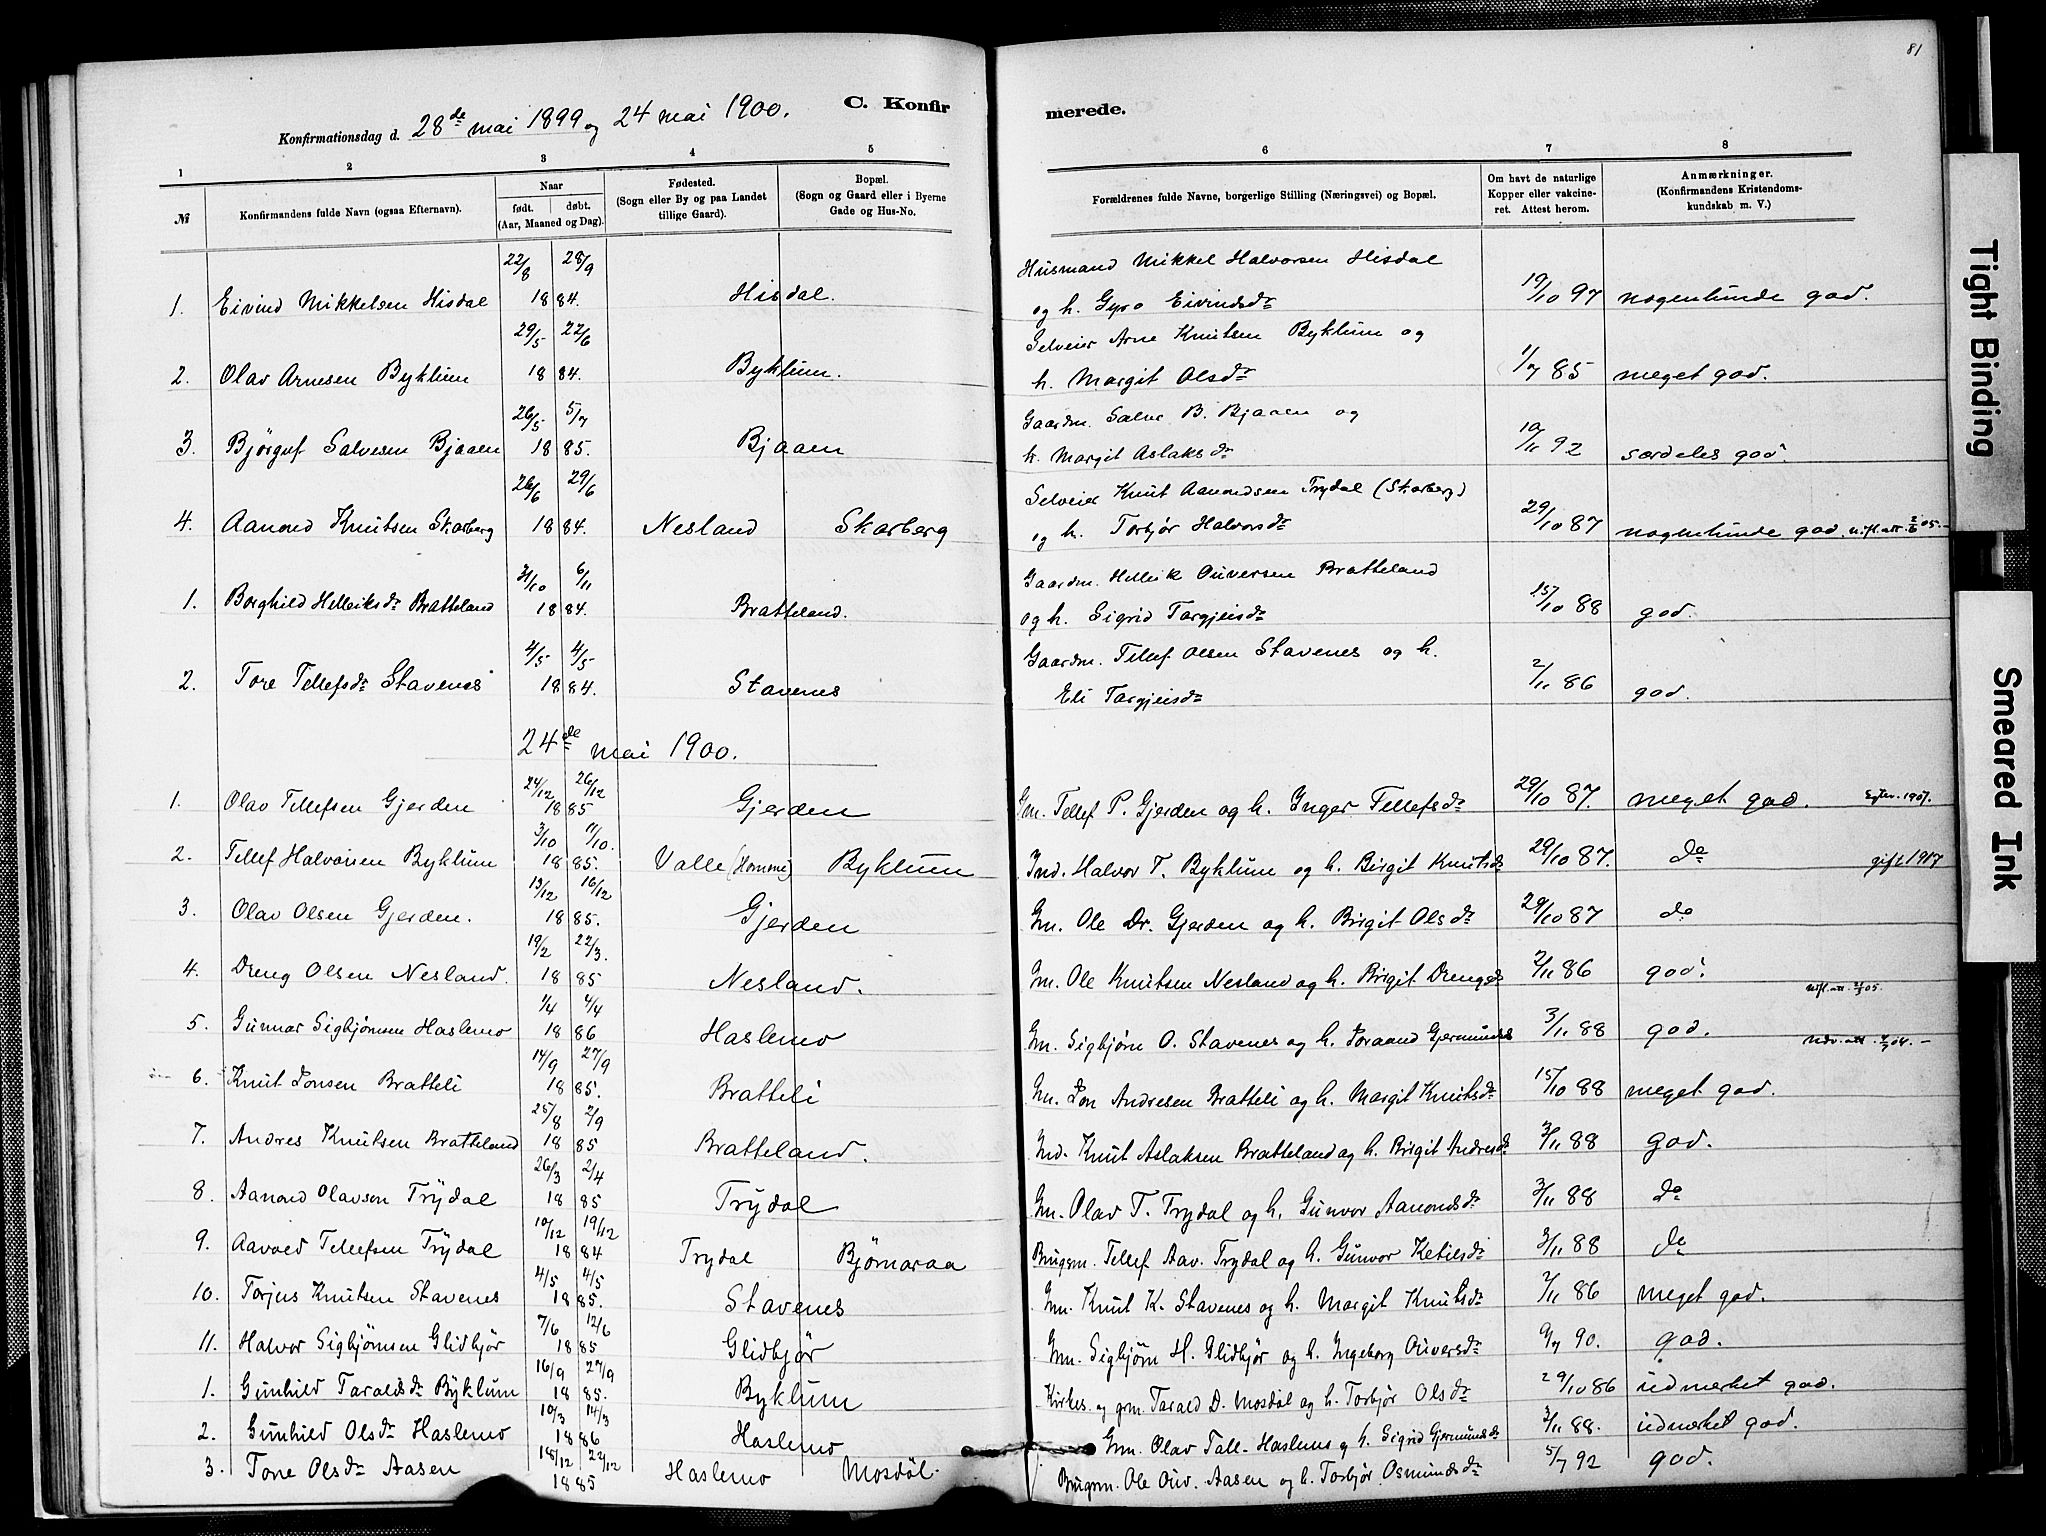 81
C. Konfirmerede.
Konfirmationsdag d. 28de mai 1899 og 24 mai 1900.
1 2 3 4 5 6 7 8
№
Konfirmandens fulde Navn (ogsaa Efternavn).
Naar
født. døbt.
(Aar, Maaned og Dag).
Fødested.
(Sogn eller By og paa Landet
tillige Gaard).
Bopæl.
(Sogn og Gaard eller i Byerne
Gade og Hus-No.
Forældrenes fulde Navne, borgerlige Stilling (Næringsvei) og Bopæl.
Om havt de naturlige
Kopper eller vakcine-
ret. Attest herom.
Anmærkninger.
(Konfirmandens Kristendoms-
kundskab m. V.)
22/8 28/9 Husmand Mikkel Halvorsen Hisdal
1. Eivind Mikkelsen Hisdal 1884. Hisdal. og h. Gyro Eivindsdr 19/10 97 nogenlunde god.
29/5 22/6 Selveier Arne Knutsen Byklum og
2. Olav Arnesen Byklum 1884. Byklum. h. Margit Olsdr 1/7 85 meget god.
26/5 5/7 Gaardm. Salve B. Bjaaen og
3. Bjørguf Salvesen Bjaaen 1885. Bjaaen h. Margit Aslaksdr 19/11 92 særdeles god.
26/6 29/6 Selveier Knut Aanondsen Trydal (Skarberg)
4. Aanond Knutsen Skarberg 1884. Nesland Skarberg og h. Torbjør Halvorsdr 29/10 87 nogenlunde god. utfl. att. 2/6 05.
31/10 6/11 Gaardm. Helleik Ouversen Bratteland
1. Borghild Helleiksdr Bratteland 1884. Bratteland. og h. Sigrid Targjeisdr 15/10 88 god.
4/5 4/5 Gaardm. Tellef Olsen Stavenes og h.
2. Tore Tellefsdr Stavenes 1884. Stavenes Eli Targjeisdr 2/11 86 god.
24de mai 1900.
24/12 26/12
1. Olav Tellefsen Gjerden 1885 Gjerden Gm. Tellef P. Gjerden og h. Inger Tellefsdr 29/10 87. meget god. 1907.
3/10 11/10.
2. Tellef Halvorsen Byklum 1885. Valle (Homme) Byklum Ind. Halvor T. Byklum og h. Birgit Knutsdr 29/10 87. do gift 1917
13/12 16/12
3. Olav Olsen Gjerden. 1885. Gjerden Gm. Ole Dr. Gjerden og h. Birgit Olsdr 29/10 87 do
19/2 22/3.
4. Dreng Olsen Nesland. 1885 Nesland. Gm. Ole Knutsen Nesland og h. Birgit Drengsdr 2/11 86 god.
1/4 4/4 utfl. att. 05.
5. Gunnar Sigbjørnsen Haslemo 1886 Haslemo Gm. Sigbjørn O. Stavenes og h. Joraand Gjermundsdr 3/11 88 god.
14/9 27/9 04.
6. Knut Jonsen Bratteli 1885. Bratteli Gm. Jon Andresen Bratteli og h. Margit Knutsdr 15/10 88 meget god.
25/8 2/9
7. Andres Knutsen Bratteland 1885 Bratteland. Ind. Knut Aslaksen Bratteland og h. Birgit Andresdr 3/11 88 god.
26/3 2/4
8. Aanond Olavson Trydal 1885 Trydal Gm. Olav T. Trydal og h. Gunvor Aanondsdr 3/11 88 do
10/12 19/12
9. Aavold Tellefsen Trydal 1884 Trydal Bjørnaraa Brugsm. Tellef Aav. Trydal og h. Gunvor Ketilsdr 3/11 88 do
4/5 4/5
10. Torjus Knutsen Stavenes 1885. Stavenes Gm. Knut K. Stavenes og h. Margit Knutsdr 2/11 86 meget god.
7/6 12/6
11. Halvor Sigbjørnsen Glidbjør 1885 Glidbjør Gm. Sigbjørn H. Glidbjør og h. Ingeborg Ouversdr 9/7 90. god.
16/9 27/9
1. Gunhild Taraldsdr Byklum 1885. Byklum Kirkes. og gm. Tarald D. Mosdøl og h. Torbjør Olsdr 29/10 86 udmerket god.
10/3 14/3
2. Gunhild Olsdr Haslemo 1886 Haslemo Gm. Olav Tall. Haslemo og h. Sigrid Gjermundsdr 3/11 88. udmerket god.
18/12 22/12
3. Tone Olsdr Aasen 1885 Haslemo Mosdøl. Brugsm. Ole Ouv. Aasen og h. Torbjør Osmundsdr 5/7 92 god.
Tight Binding
Smeared Ink